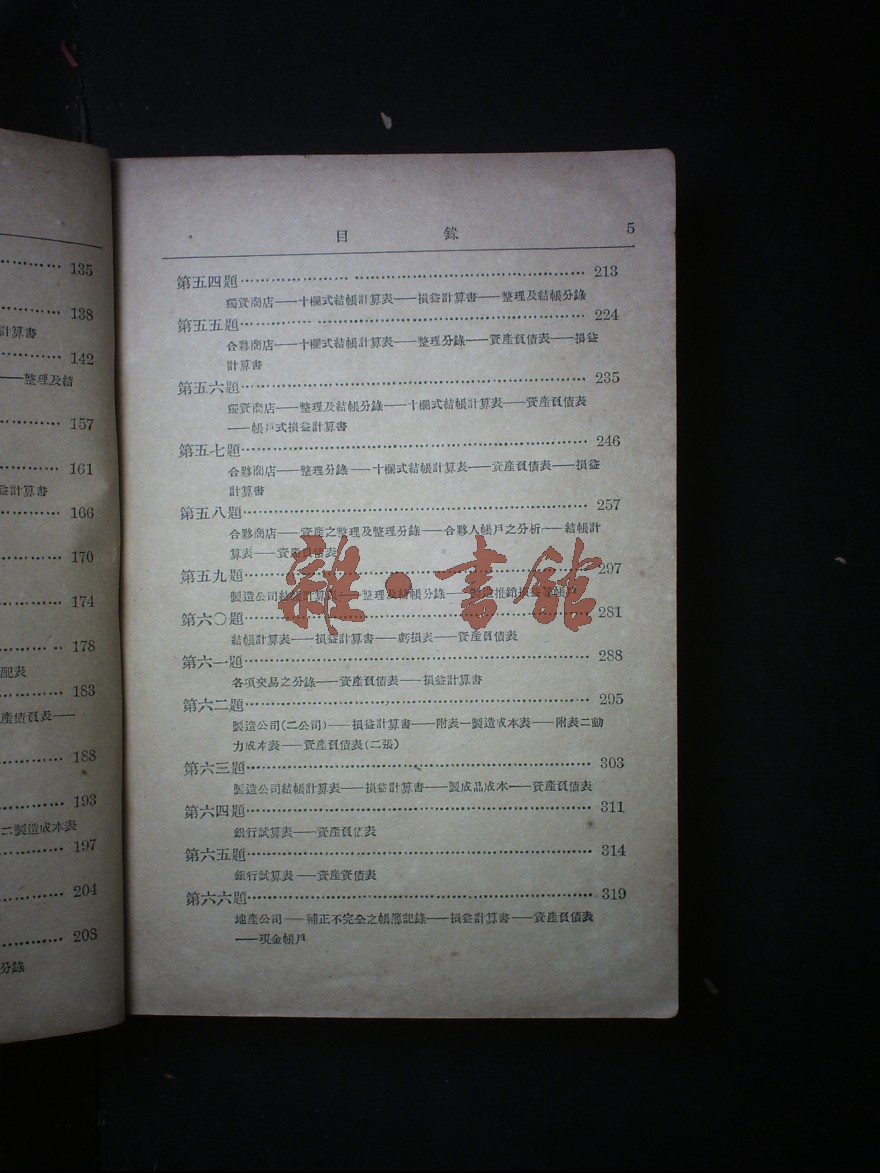 135
138
計算書
142
——整理及結
157
161
益計算書
166
170
174
178
配表
183
產債負表——
188
193
二製造成本表
197
204
208
分錄
目 錄 5
第五四題 213
獨資商店——十欄式結帳計算表——損益計算書——整理及結帳分錄
第五五題 224
合夥商店——十欄式結帳計算表——整理分錄——資產負債表——損益
計算書
第五六題 235
獨資商店——整理及結帳分錄——十欄式結帳計算表——資產負債表
——帳戶式損益計算書
第五七題 246
合夥商店——整理分錄——十欄式結帳計算表——資產負債表——損益
計算書
第五八題 257
合夥商店——資產之整理及整理分錄——合夥人帳戶之分析——結帳計
算表——資產負債表
第五九題 297
製造公司結帳計算表——整理及結帳分錄——製造推銷損益等帳戶
第六〇題 281
結帳計算表——損益計算書——虧損表——資產負債表
第六一題 288
各項交易之分錄——資產負債表——損益計算書
第六二題 295
製造公司(二公司)——損益計算書——附表一製造成本表——附表二動
力成本表——資產負債表(二張)
第六三題 303
製造公司結帳計算表——損益計算書——製成品成本——資產負債表
第六四題 311
銀行試算表——資產負債表
第六五題 314
銀行試算表——資產資債表
第六六題 319
地產公司——補正不完全之帳簿記錄——損益計算書——資產負債表
——現金帳戶
雜·書館